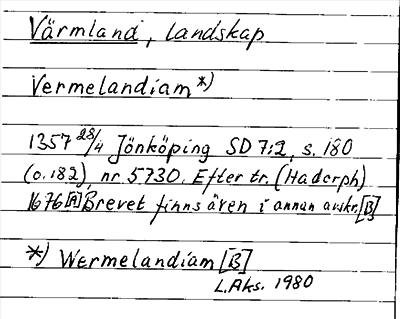 Värmland, landskap
Vermelandiam *)
1357 28/4 Jönköping SD 7:2, s. 180
(o. 182), nr 5730. Efter tr. (Hadorph)
1676 [A] Brevet finns även i annan avskr. [B]
*) Wermelandiam [B]
L.Aks. 1980